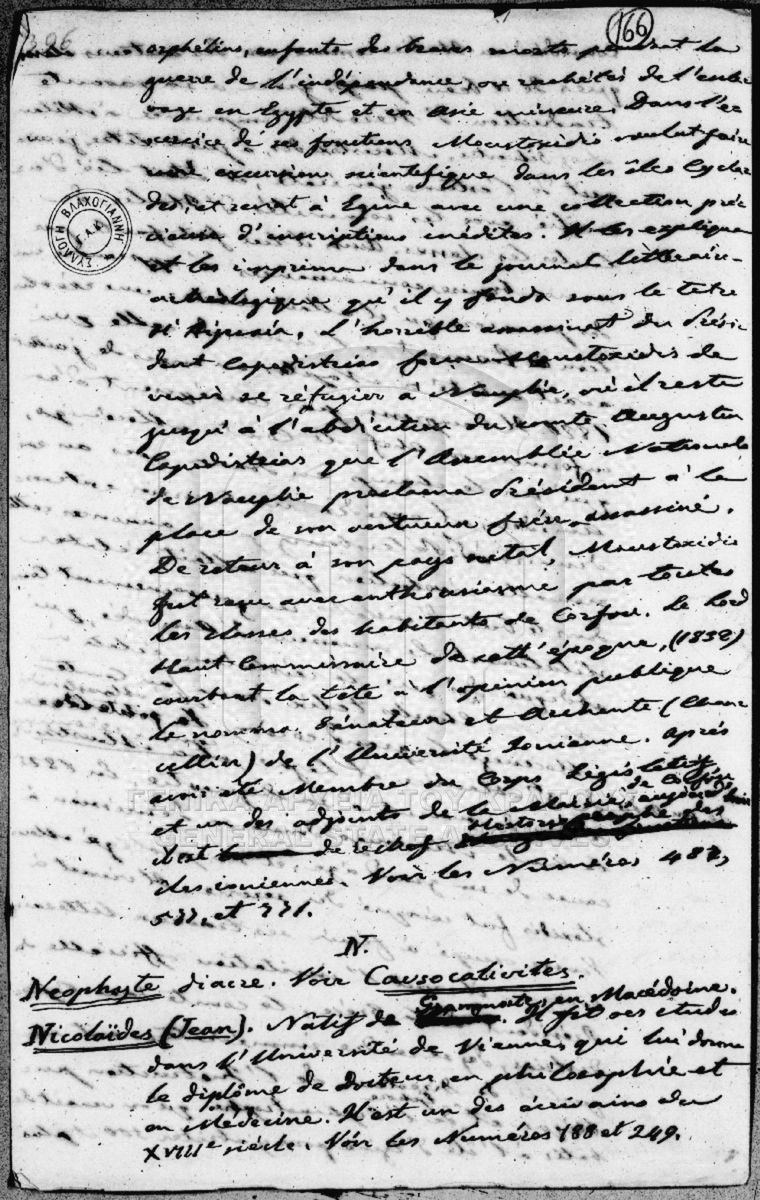 166
orphélins, enfants des braves morts pendant la
guerre de l'indépendance, ou rachetés de l'escla-
vage en Egypte et en Asie mineure. Dans l'e-
xercice de ses fonctions Moustoxidis voulut faire
une excursion scientifique dans les îles Cycla-
des, et revint à Egine avec une collection pré-
cieuse d'inscriptions inédites. Il les expliqua
et les imprima dans le journal littérair-
archéologique qu'il y fonda sous le titre
d'Αἰγιναία. L'horrible assassinat du Prési-
dent Capodistrias força Moustoxidis de
venir se réfugier à Nauplie, où il resta
jusqu'à l'abdication du comte Augustin
Capodistrias que l'Assemblée Nationale
de Nauplie proclama Président à la
place de son vertueux frère assassiné.
De retour à son pays natal, Moustoxidis
fut reçu avec enthousiasme par toutes
les classes des habitants de Corfou. Le Lord
Haut Commissaire de cett' époque, (1832)
courbant la tête à l'opinion publique
le nomma Sénateur et Archonte (Chan-
cellier) de l'Université Ionienne. Après
avoir été Membre du Corps Législatif
et un des adjoints de la Mairie de Corfou aujourd'hui
il est de rechef
des ioniennes. Voir les Numéros 487,
577, et 771.
N.
Neophyte diacre. Voir Causocalivites.
Nicolaïdes (Jean). Natif de Grammoste, en Macédoine. Il fit ses études
dans l'Université de Viennes qui lui donna
le diplôme de docteur en philosophie et
en Médecine. Il est un des écrivains du
XVIIIe siècle. Voir les Numéros 188 et 249.
ΣΥΛΛΟΓΗ ΒΛΑΧΟΓΙΑΝΝΗ
Γ.Α.Κ.
ΓΕΝΙΚΑ ΑΡΧΕΙΑ ΤΟΥ ΚΡΑΤΟΥΣ
GENERAL STATE ARCHIVES